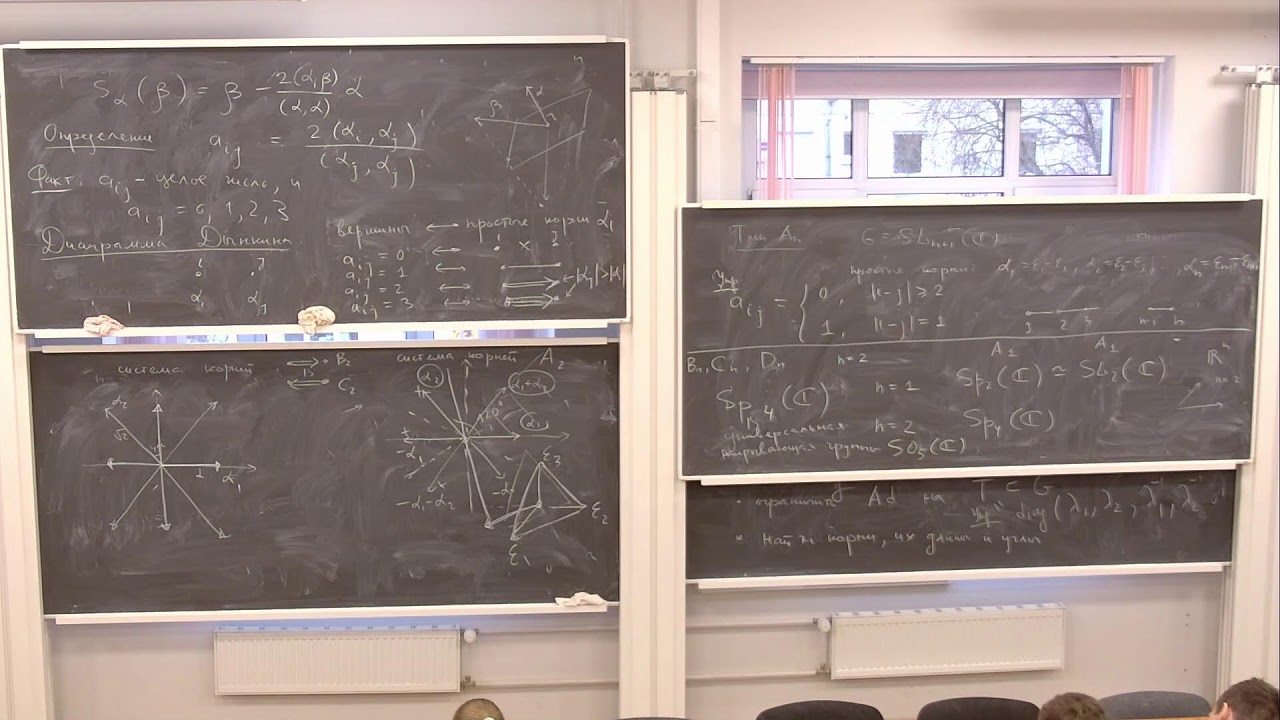 S_α(β) = β - 2(α,β)/(α,α) α
Определение a_ij = 2(α_i, α_j)/(α_j, α_j)
Факт. a_ij - целое число, и
a_ij = 0, 1, 2, 3
Диаграмма Дынкина
i j
α_i α_j
вершины ↔ простые корни α_i
a_ij = 0 ↔
a_ij = 1 ↔
a_ij = 2 ↔
a_ij = 3 ↔
β α
система корней
B_2
C_2
α_2
√2
1 α_1
система корней A_2
α_2 α_1+α_2
α_1
-α_1
-α_1-α_2
ε_3
ε_2
ε_1
Тип A_n G = SL_{n+1}(ℂ)
простые корни: α_1 = ε_1 - ε_2, α_2 = ε_2 - ε_3,
Упр
a_ij = { 0, |i-j| ≥ 2
1, |i-j| = 1
1 2 3 n-1 n
B_n, C_n, D_n n=2
A_1 A_1
n=1 Sp_2(ℂ) ≃ SL_2(ℂ)
ℝ^n
n=2
n=2 Sp_4(ℂ)
универсальная
накрывающая группы SO_5(ℂ)
• ограничить Ad на T ⊂ G
Упр diag(λ_1, λ_2, λ_1^{-1}, λ_2^{-1}
• найти корни, их длины и углы